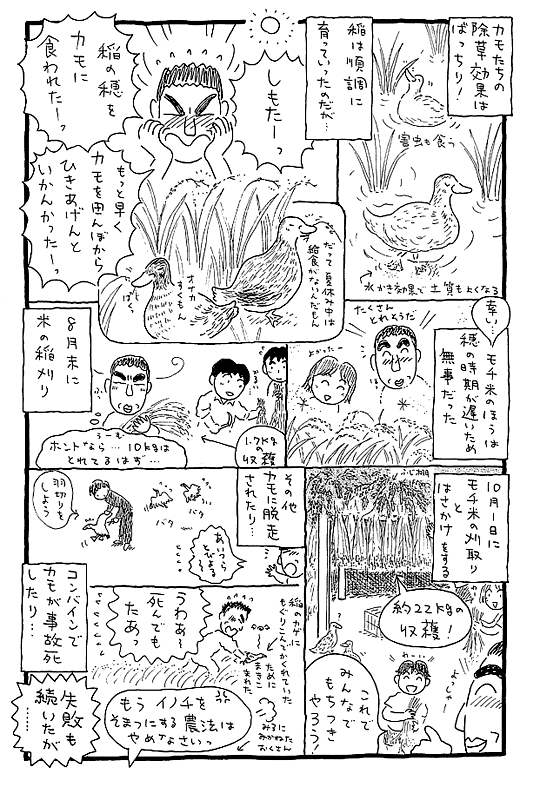 カモたちの
除草効果は
ばっちり！
害虫も食う
水かき効果で土質もよくなる
稲は順調に
育っていったのだが…
しもたーっ
稲の穂を
カモに
食われたーっ
もっと早く
カモを田んぼから
ひきあげんと
いかんかったーっ
だって夏休み中は
給食がないんだもん
オナカ
すくもん
ぱく
幸い
モチ米のほうは
穂の時期が遅いため
無事だった
たくさん
とれそうだ
よかったー
8月末に
米の稲刈り
1.7kgの
収穫
うーむ
ホントなら…10kgは
とれてるはず…
10月1日に
モチ米の刈取り
と
はさかけをする
約22kgの
収穫！
これで
みんなで
もちつき
やろう！
わーい
よっしゃー
その他
カモに脱走
されたり…
羽切りを
しよう
バタ
バタ
あいつら
とんどるぞ
コンバインで
カモが事故死
したり…
うわあ〜
死んでも
たぁっ
稲のカゲに
もぐりこんでかくれていた
ために
まきこ
まれた
もうイノチを
そまつにする農法は
やめなさいっ
みるに
みかねた
おくさん
失敗も
続いたが
……